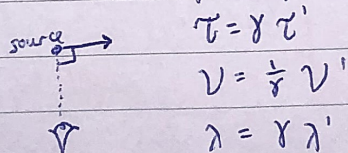 source
τ = γ τ'
ν = 1/γ ν'
λ = γ λ'